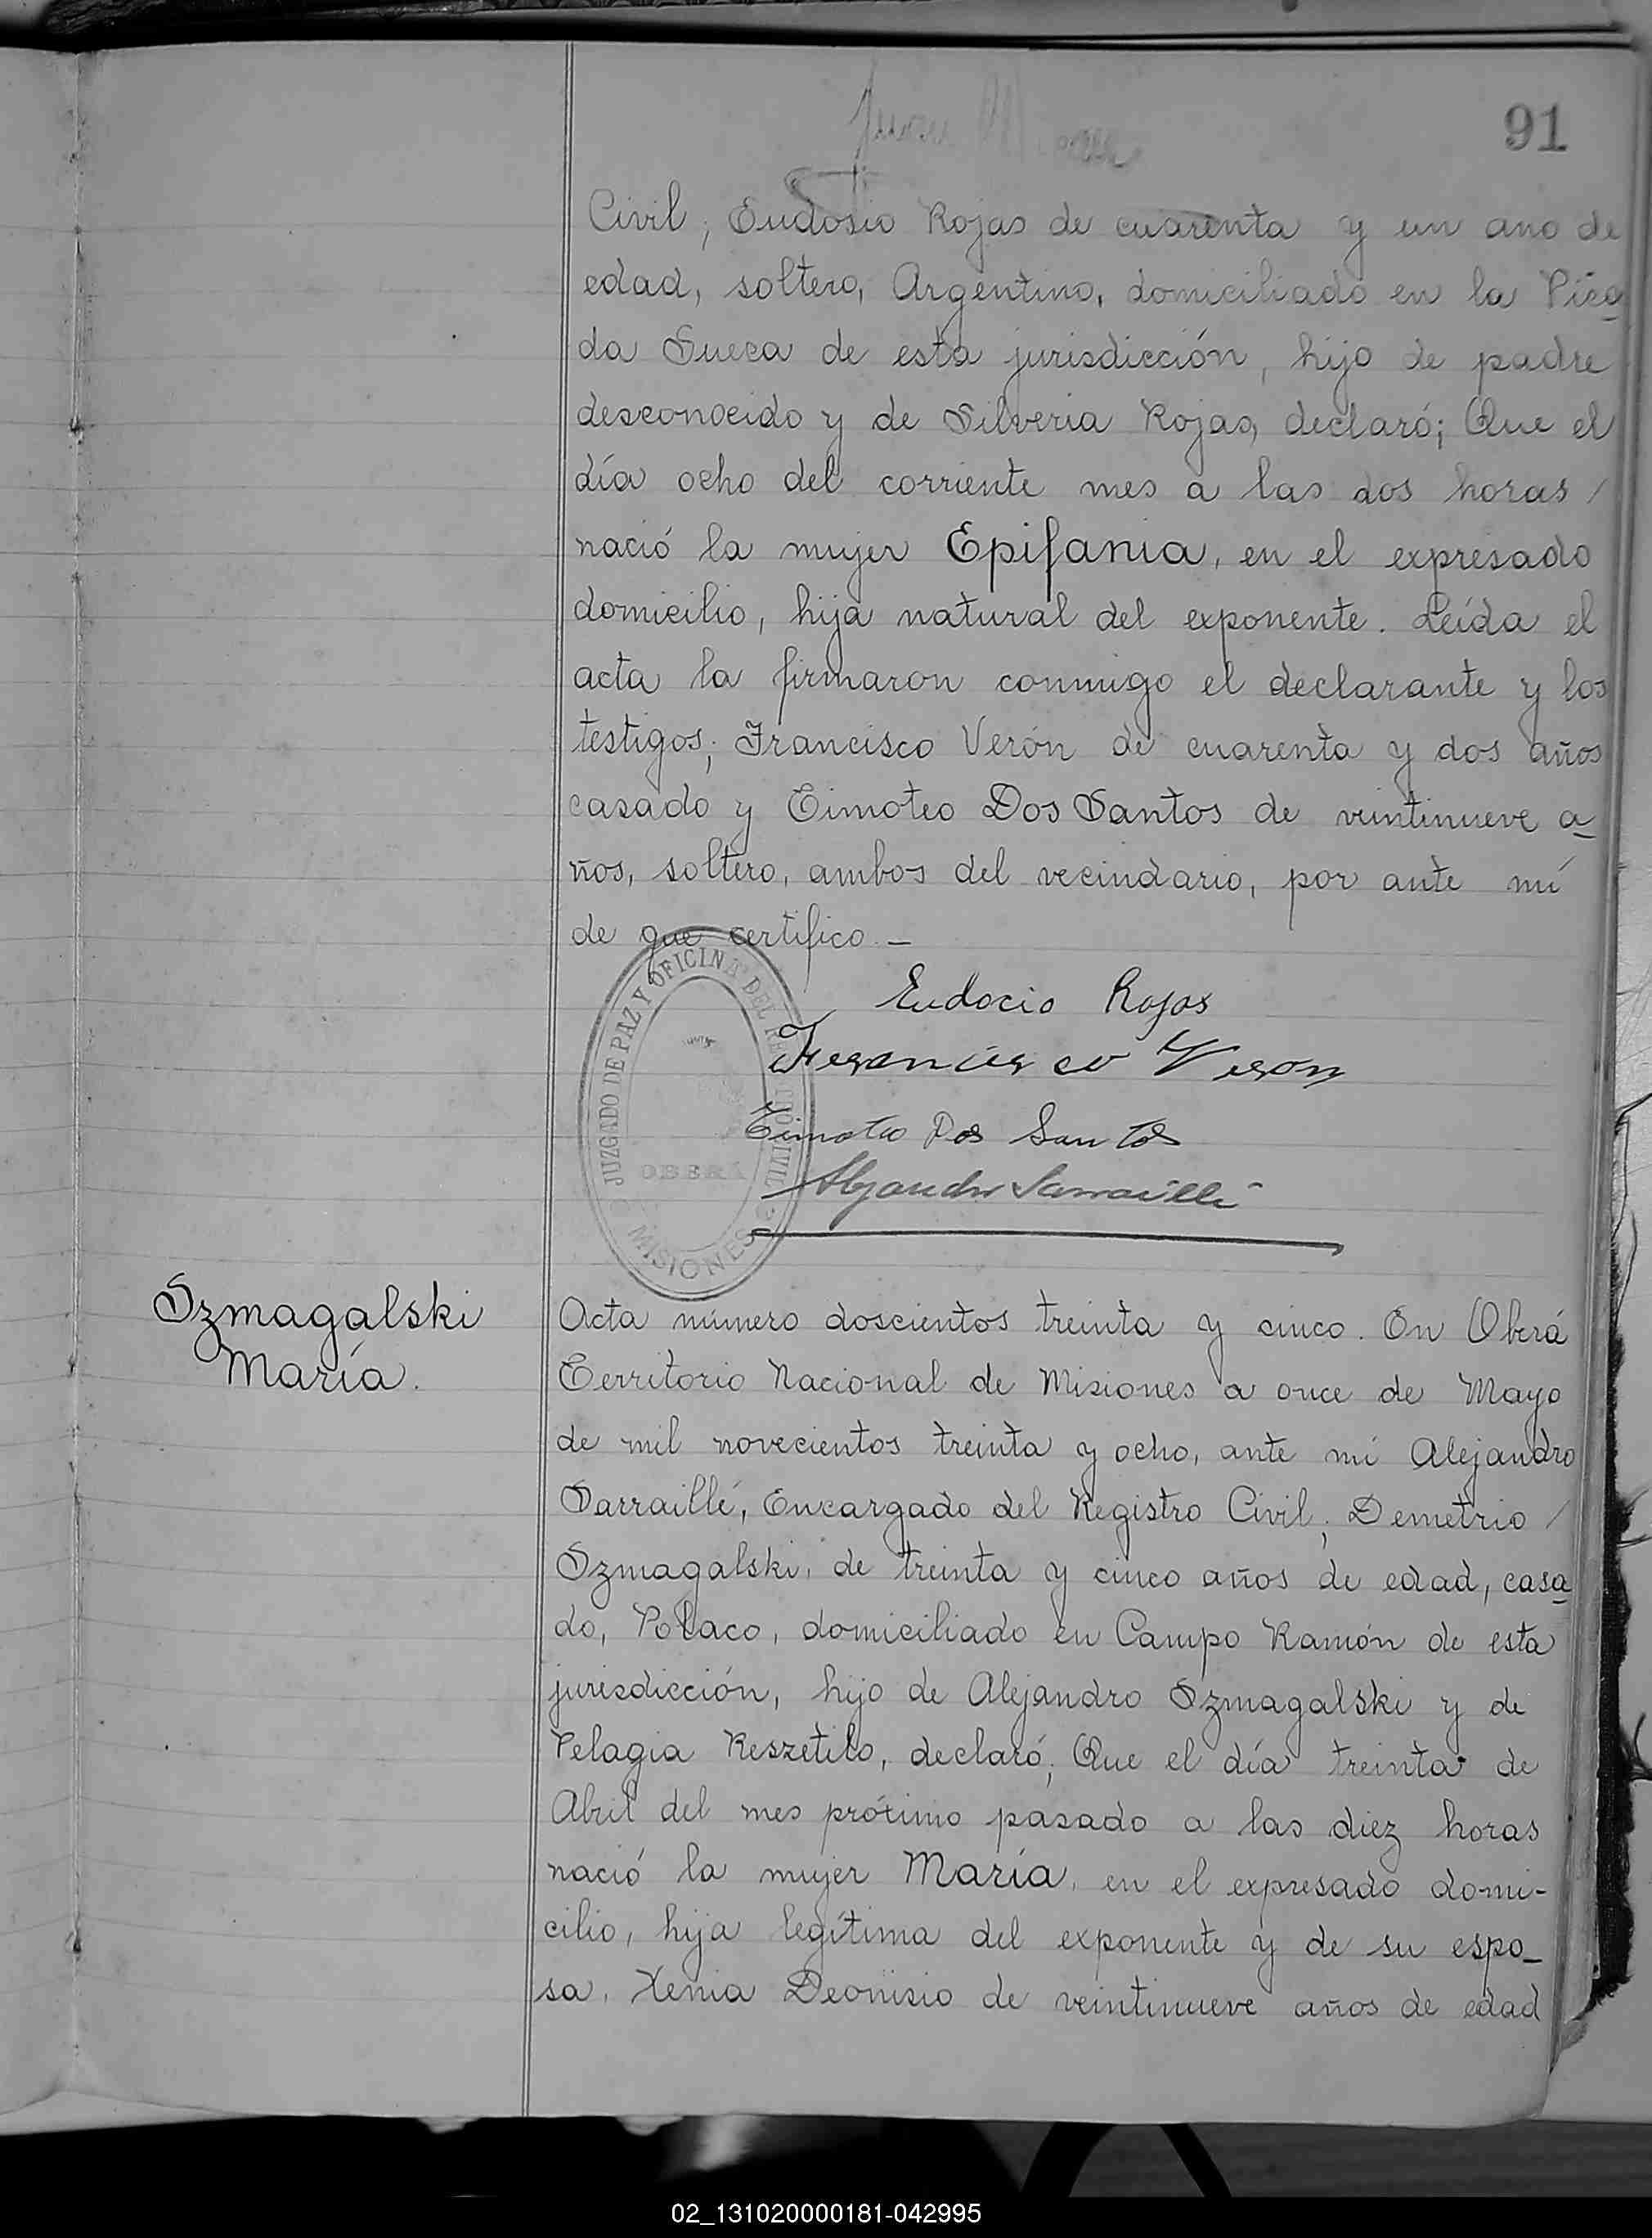 91
Civil, Eudosio Rojas de cuarenta y un ano de
edad, soltero, Argentino, domiciliado en la Pica
da Sueca de esta jurisdicción, hijo de padre
desconocido y de Silveria Rojas, declaró; Que el
día ocho del corriente mes a las dos horas /
nació la mujer Epifania, en el expresado
domicilio, hija natural del exponente. Leída el
acta la firmaron conmigo el declarante y los
testigos; Francisco Verón de cuarenta y dos años
casado y Timoteo Dos Santos de veintinueve a
ños, soltero, ambos del vecindario, por ante mí
de que certifico. —
JUZGADO DE PAZ Y OFICINA DEL REGISTRO CIVIL
OBERÁ
MISIONES
Eudocio Rojas
Francisco Veron
Timoteo Dos Santos
Alejandro Sarraillé
Szmagalski
María.
Acta número doscientos treinta y cinco. En Oberá
Territorio Nacional de Misiones a once de Mayo
de mil novecientos treinta y ocho, ante mí Alejandro
Sarraillé, Encargado del Registro Civil; Demetrio /
Szmagalski, de treinta y cinco años de edad, casa
do, Polaco, domiciliado en Campo Ramón de esta
jurisdicción, hijo de Alejandro Szmagalski y de
Pelagia Reszetilo, declaró; Que el día treinta de
Abril del mes próximo pasado a las diez horas
nació la mujer María, en el expresado domi-
cilio, hija legítima del exponente y de su espo_
sa, Xenia Deonisio de veintinueve años de edad
02_131020000181-042995